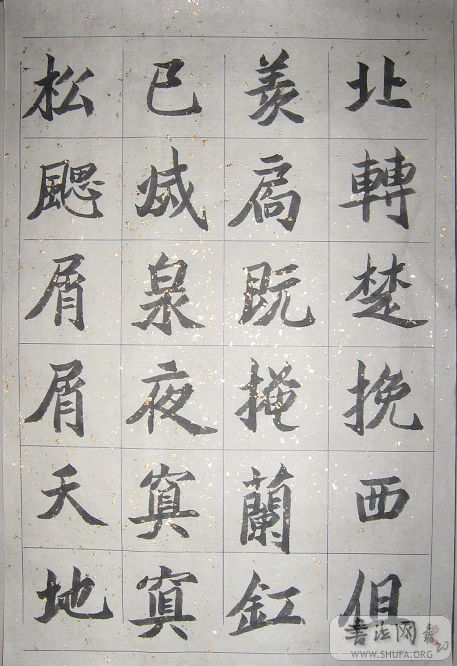 北轉楚挽西徂
羨扃既掩蘭釭
已滅泉夜寘寘
松颸屑屑天地
书法网
WWW.SHUFA.ORG